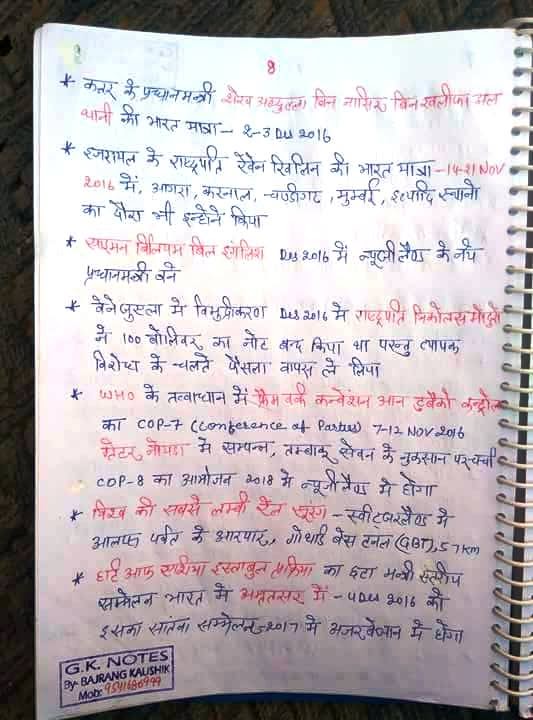 8
* कतर के प्रधानमन्त्री शेख अब्दुल्ला बिन नासिर बिन खलीफा अल
थानी की भारत यात्रा - 2-3 Des 2016
* इजरायल के राष्ट्रपति रेवेन रिवलिन की भारत यात्रा - 14-21 NOV
2016 में, आगरा, करनाल, चण्डीगढ, मुम्बई, इत्यादि स्थानो
का दौरा भी इन्होने किया
* साइमन विलियम बिल इंगलिश Des 2016 में न्यूजीलैण्ड के नये
प्रधानमन्त्री बने
* वेनेजुएला मे विमुद्रीकरण Des 2016 मे राष्ट्रपति निकोलस मादुरो
ने 100 बोलिवर का नोट बन्द किया था परन्तु व्यापक
विरोध के चलते फैसला वापस ले लिया
* WHO के तत्वाधान में फ्रेमवर्क कन्वेंशन आन टुबैको कन्ट्रोल
का COP-7 (Conference of Parties) 7-12 NOV 2016
ग्रेटर नोयडा मे सम्पन्न, तम्बाकू सेवन के नुकसान पर चर्चा
COP-8 का आयोजन 2018 मे न्यूजीलैण्ड मे होगा
* विश्व की सबसे लम्बी रेल सुरंग - स्वीटजरलैण्ड मे
आलफ पर्वत के आरपार, गोथार्ड बेस टनल (GBT), 57 km
* हार्ट आफ एशिया इस्तांबुल प्रक्रिया का छटा मन्त्री स्तरीय
सम्मेलन भारत मे अमृतसर में - 4 Des 2016 को
इसका सातवा सम्मेलन 2017 मे अजरबेजान मे होगा
G.K. NOTES
By- BAJRANG KAUSHIK
Mob: 9541680999